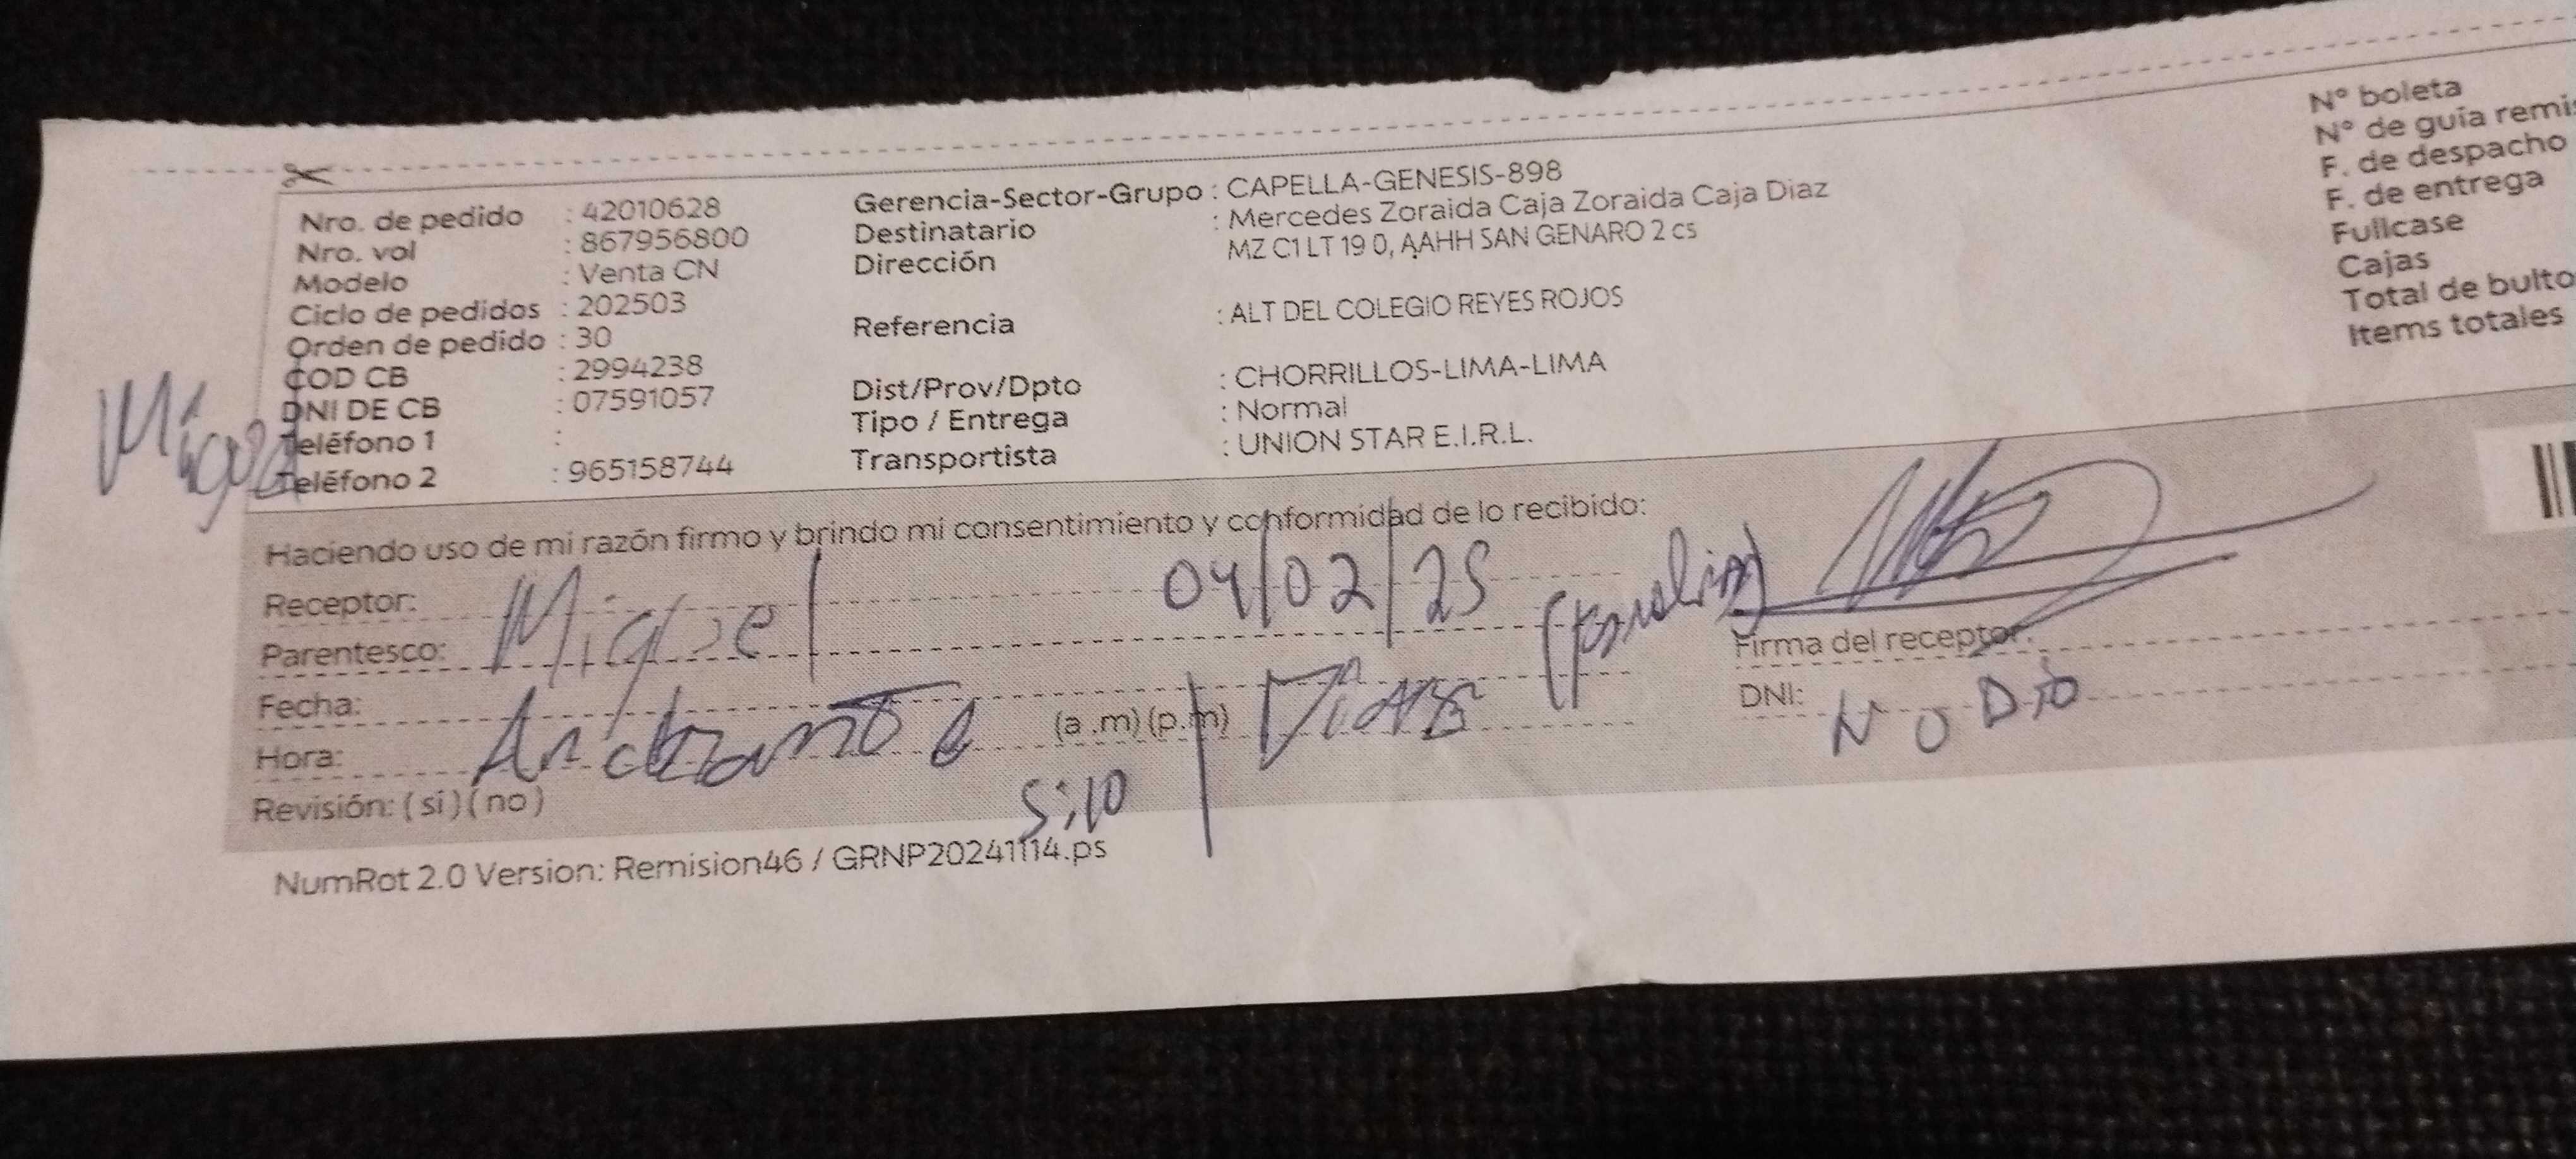 Nro. de pedido : 42010628
Nro. vol : 867956800
Modelo : Venta CN
Ciclo de pedidos : 202503
Orden de pedido : 30
COD CB : 2994238
DNI DE CB : 07591057
Teléfono 1 :
Teléfono 2 : 965158744
Miguel
Gerencia-Sector-Grupo : CAPELLA-GENESIS-898
Destinatario : Mercedes Zoraida Caja Zoraida Caja Diaz
Dirección MZ C1 LT 19 0, AAHH SAN GENARO 2 cs
Referencia : ALT DEL COLEGIO REYES ROJOS
Dist/Prov/Dpto : CHORRILLOS-LIMA-LIMA
Tipo / Entrega : Normal
Transportista : UNION STAR E.I.R.L.
N° boleta
N° de guía
F. de despacho
F. de entrega
Fullcase
Cajas
Total de
Items totales
Haciendo uso de mi razón firmo y brindo mi consentimiento y conformidad de lo recibido:
Receptor:
Parentesco: Miguel 04/02/25
Fecha:
Hora: (a .m) (p.m)
Revisión: ( si ) ( no ) 5:10
Firma del receptor:
DNI: NO DIO
NumRot 2.0 Version: Remision46 / GRNP20241114.ps